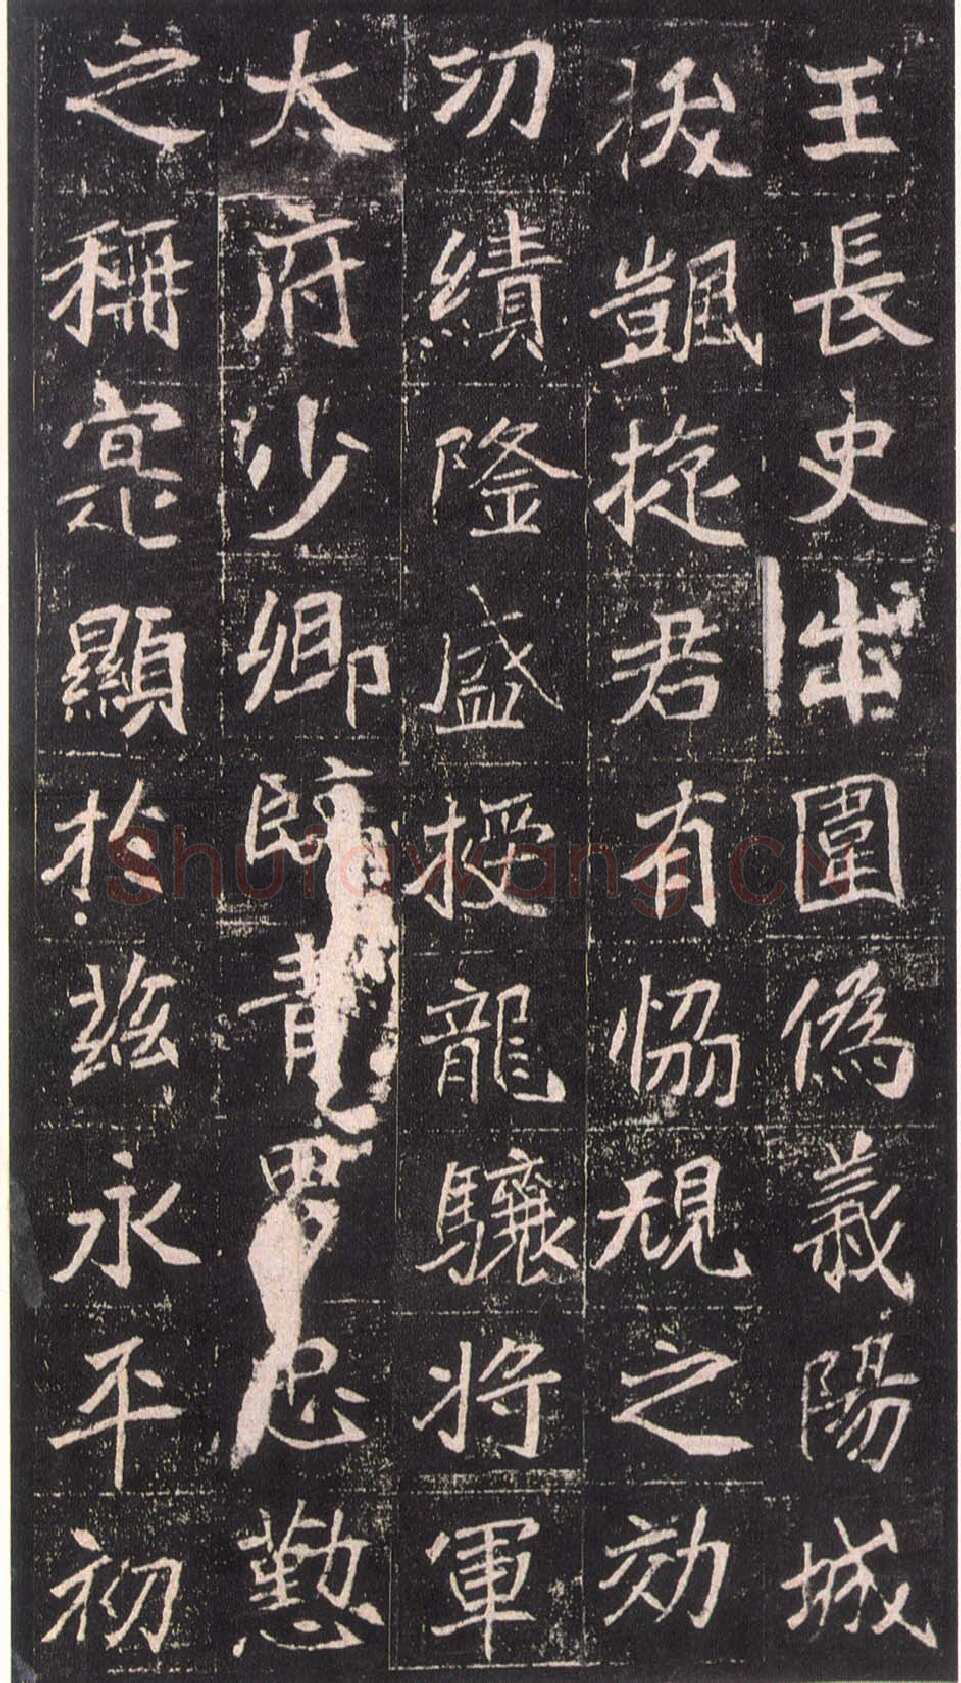 王長史出圍偽義陽城
拔颽捉君有恊規之効
功績隆盛授龍驤将軍
太府少卿臨青男忠懃
之稱寔顯於茲永平初
Shufawang.CN